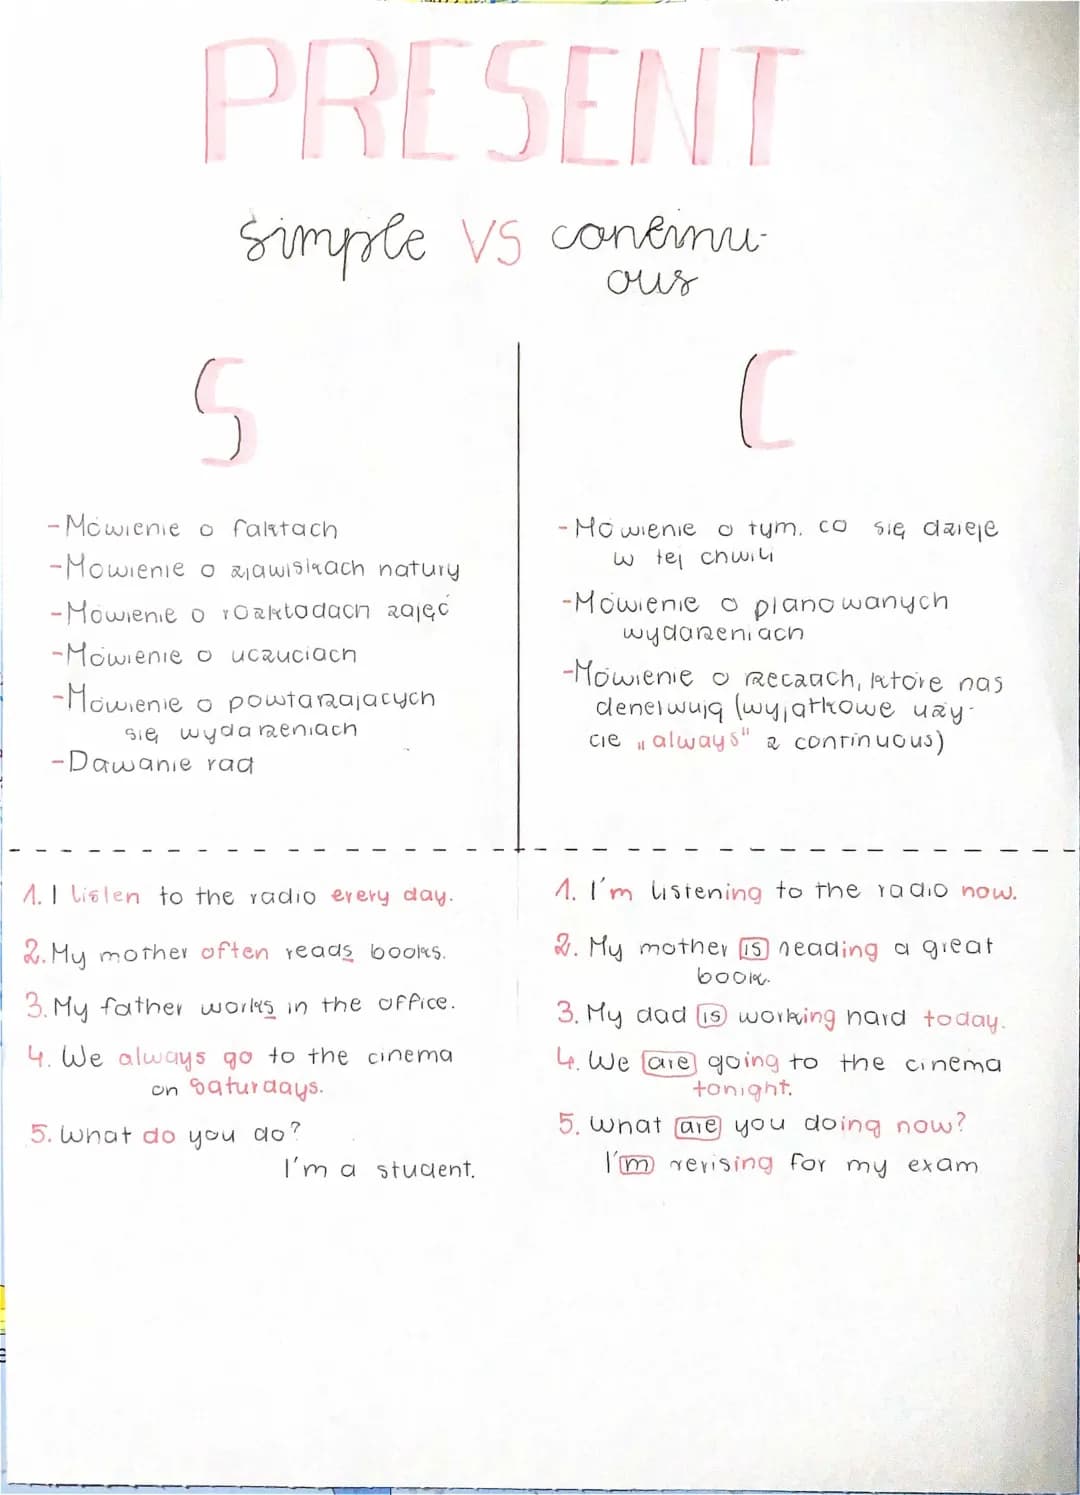 PRESENT
simple VS continu-
ous
S
-Mówienie o faktach
-Mówienie o zjawiskach natury
-Mówienie o rozkładach zajęć
-Mówienie o uczuciach
-Mówienie o powtarzających
się wydarzeniach
-Dawanie rad
C
-Mówienie o tym, co się dzieje
w tej chwili
-Mówienie o planowanych
wydarzeniach
-Mówienie o rzeczach, które nas
denerwują (wyjątkowe uży-
cie „always" z continuous)
1. I listen to the radio every day.
2. My mother often reads books.
3. My father works in the office.
4. We always go to the cinema
on saturdays.
5. What do you do?
I'm a student.
1. I'm listening to the radio now.
2. My mother is reading a great
book.
3. My dad is working hard today.
4. We are going to the cinema
tonight.
5. What are you doing now?
I'm revising for my exam